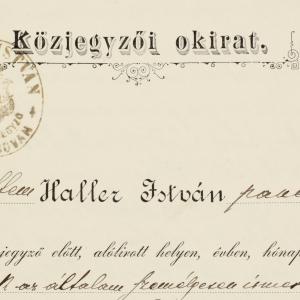 Közjegyzői okirat.
ISTVÁN
Haller István
jegyző előtt, alólirott helyen, évben, hónap
az általam személyesen ismer